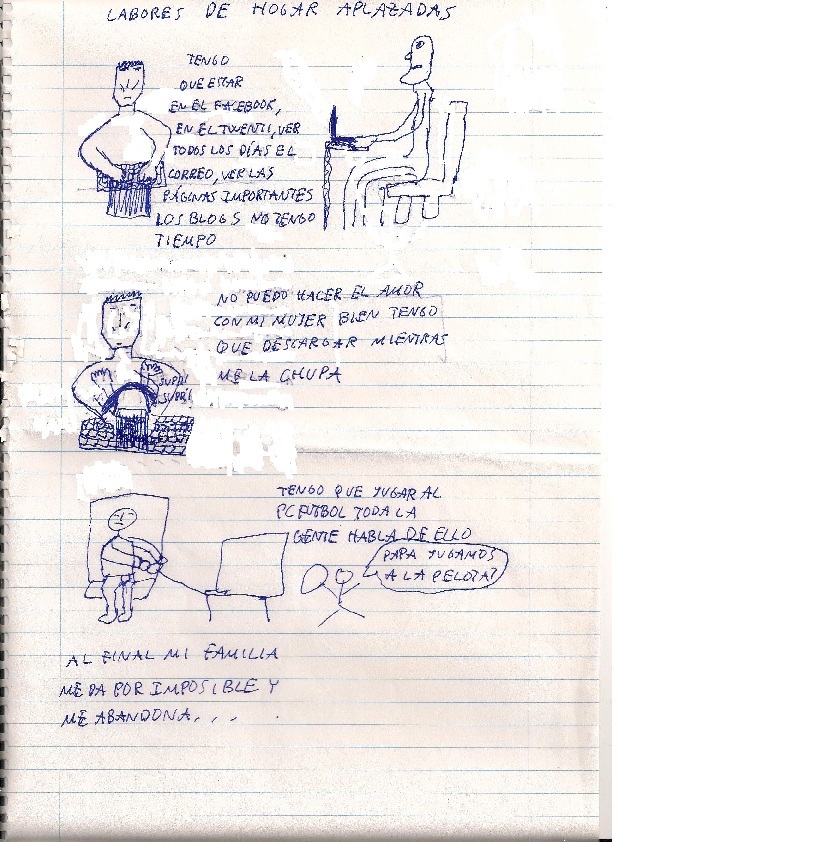 LABORES DE HOGAR APLAZADAS
TENGO
QUE ESTAR
EN EL FACEBOOK,
EN EL TWENTI, VER
TODOS LOS DÍAS EL
CORREO, VER LAS
PÁGINAS IMPORTANTES
LOS BLOGS NO TENGO
TIEMPO
NO PUEDO HACER EL AMOR
CON MI MUJER BIEN TENGO
QUE DESCARGAR MIENTRAS
ME LA CHUPA
SUPRI
SUPRI
TENGO QUE YUGAR AL
PC FUTBOL TODA LA
GENTE HABLA DE ELLO
PAPA YUGAMOS
A LA PELOTA?
AL FINAL MI FAMILIA
ME DA POR IMPOSIBLE Y
ME ABANDONA...